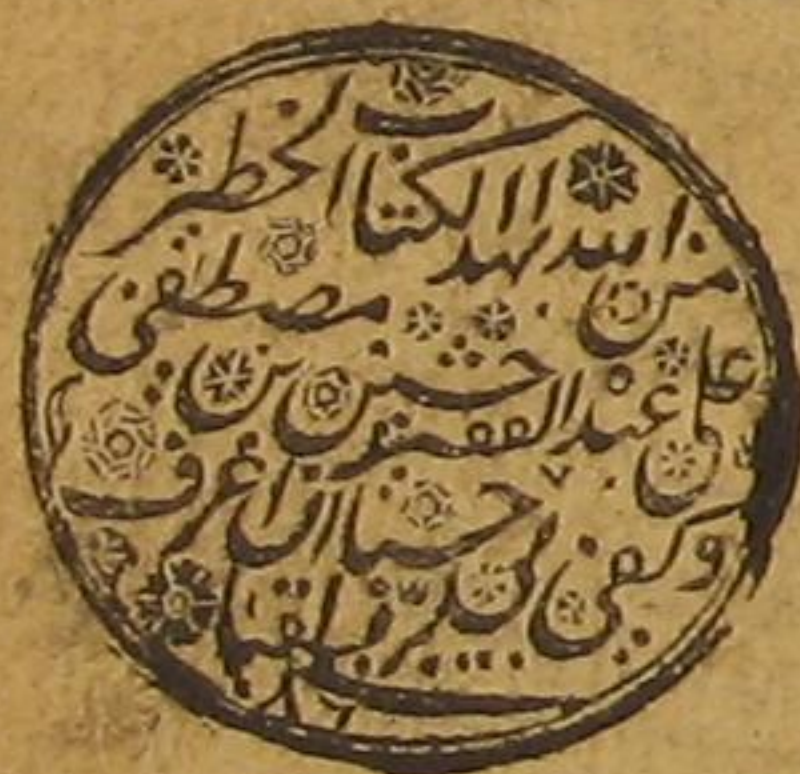 من الله بهذا الكتاب الخطير
على عبده الفقير حسين بن مصطفى
وكفى بي حسبا ان اعرف
٨٦